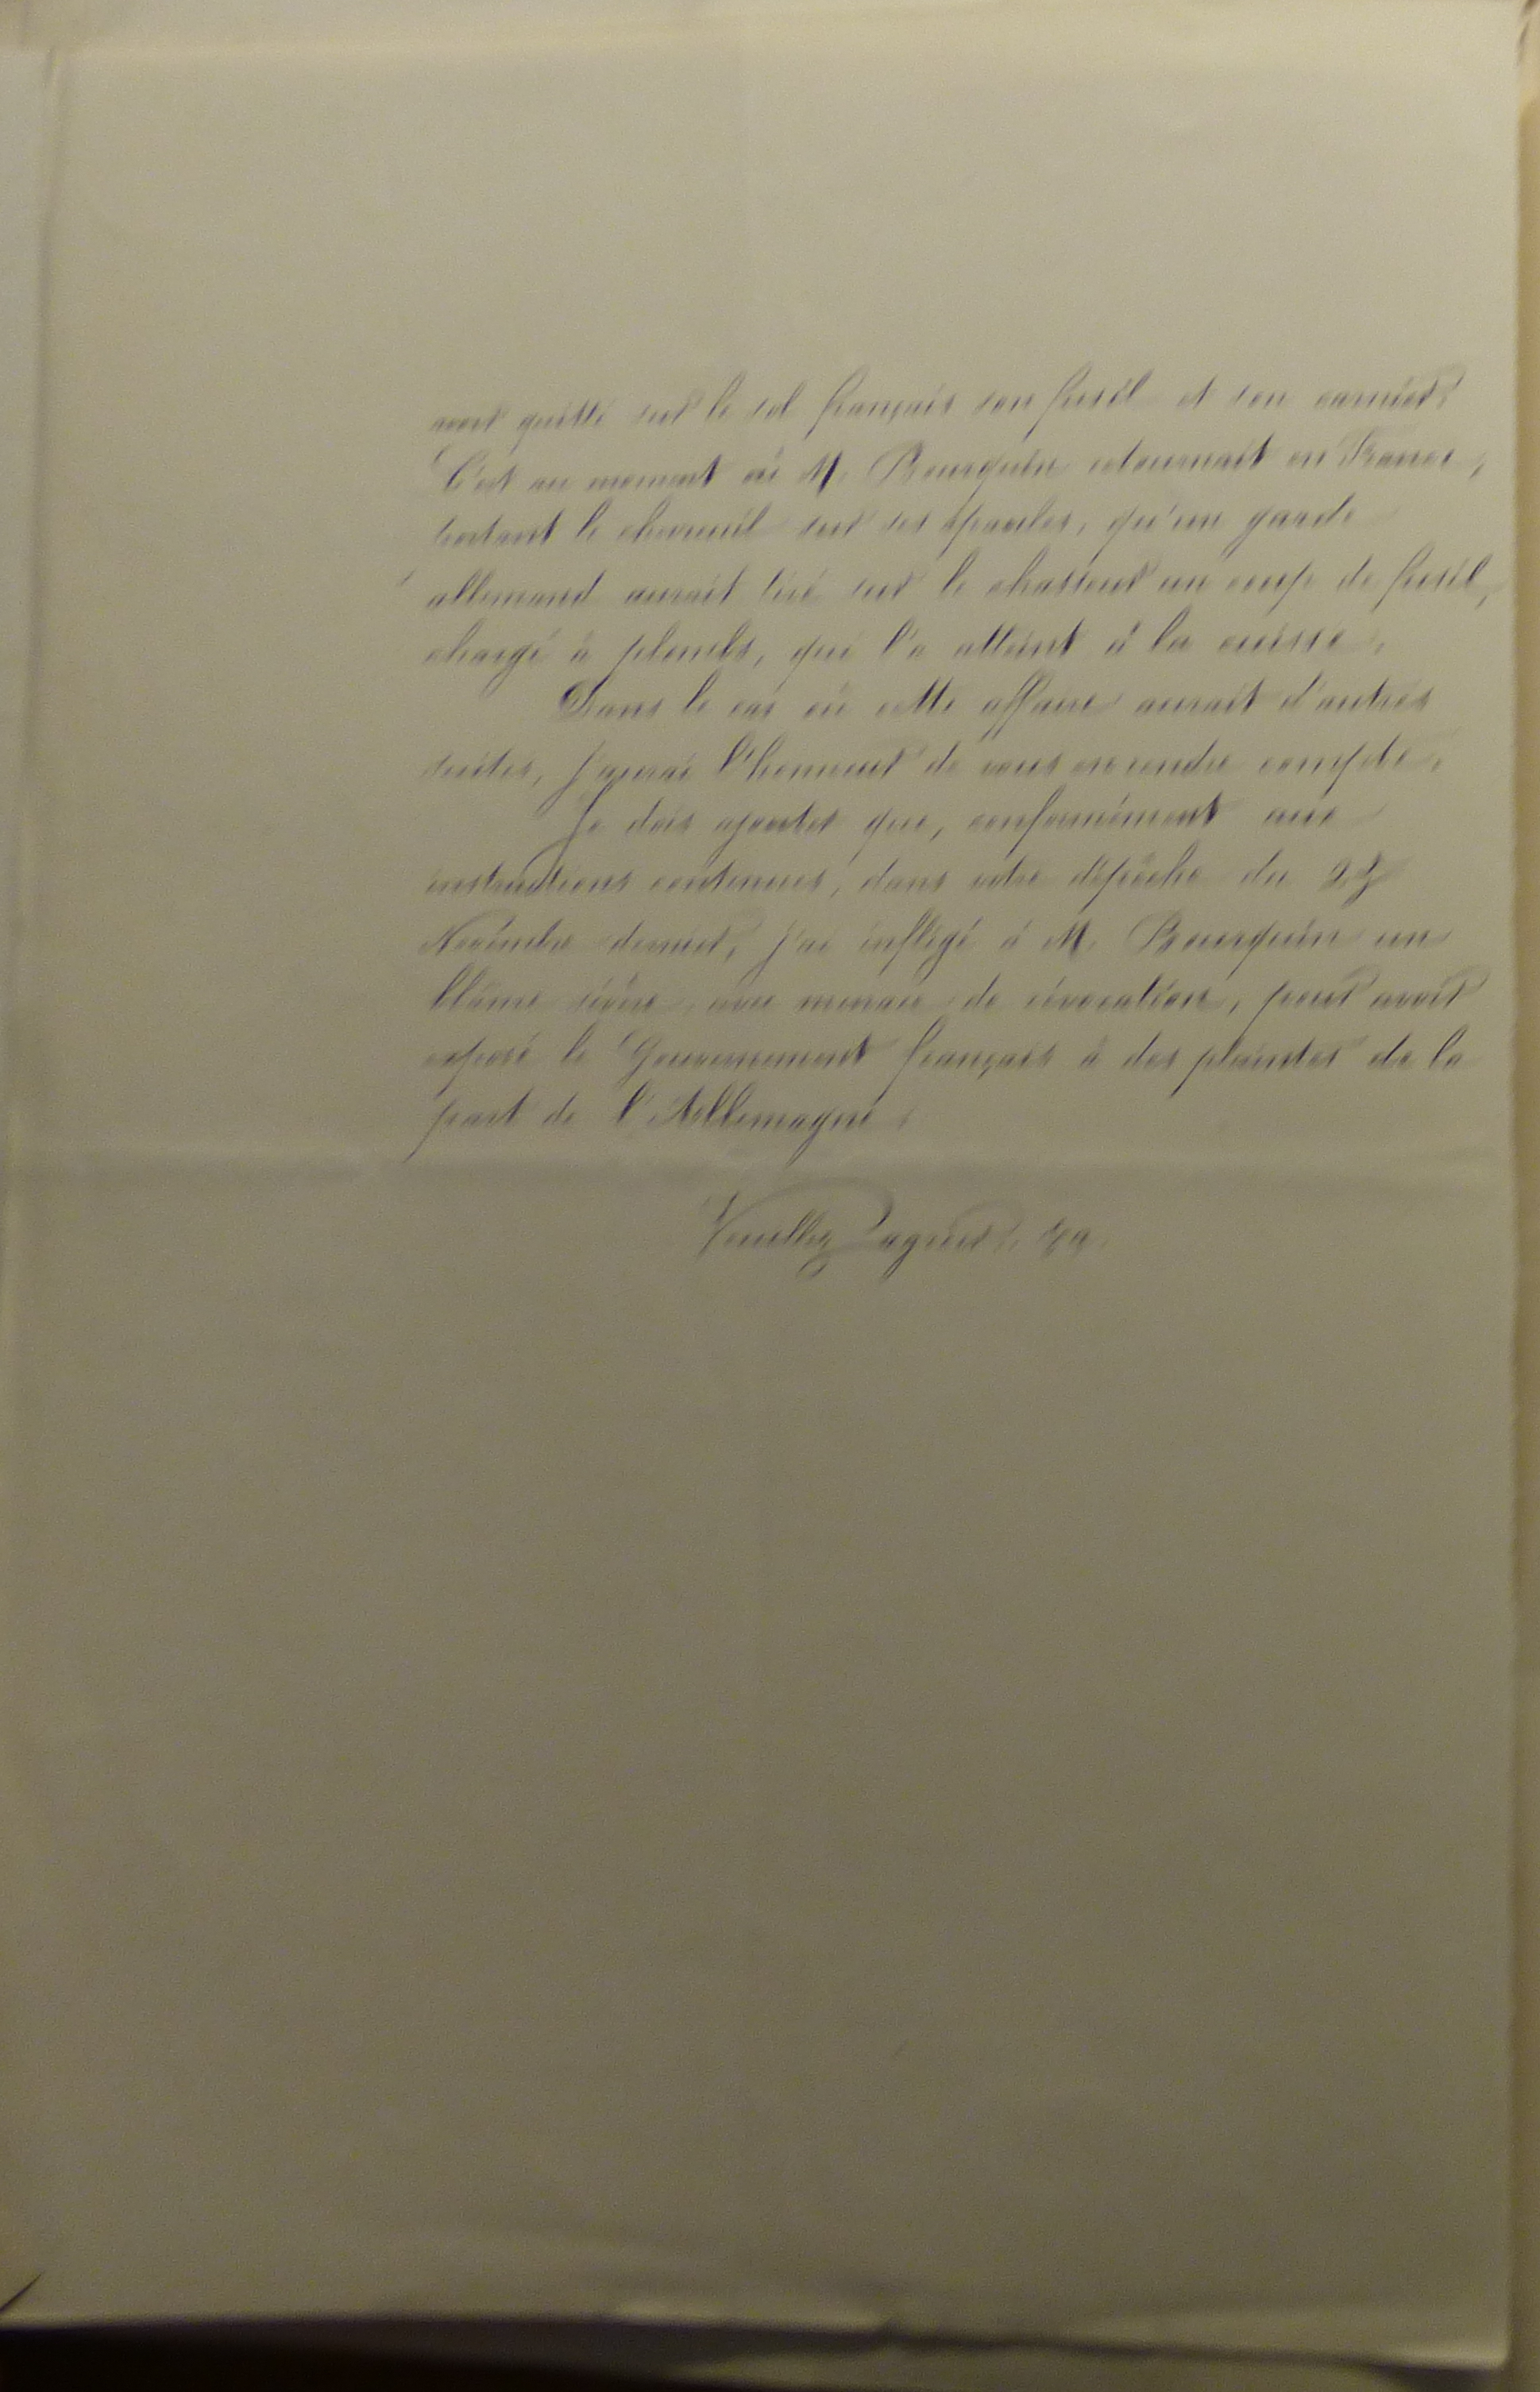 avoir quitté sur le sol français son fusil et son carnier.
C'est au moment où M. Bourquin retournait en France,
portant le chevreuil sur ses épaules, qu'un garde
allemand aurait tiré sur le chasseur un coup de fusil,
chargé à plombs, qui l'a atteint à la cuisse.
Dans le cas où cette affaire aurait d'autres
suites, j'aurai l'honneur de vous en rendre compte.
Je dois ajouter que, conformément aux
instructions contenues, dans votre dépêche du 27
Novembre dernier, j'ai infligé à M. Bourquin un
blâme sévère avec menace de révocation, pour avoir
exposé le Gouvernement français à des plaintes de la
part de l'Allemagne.
Veuillez agréer,